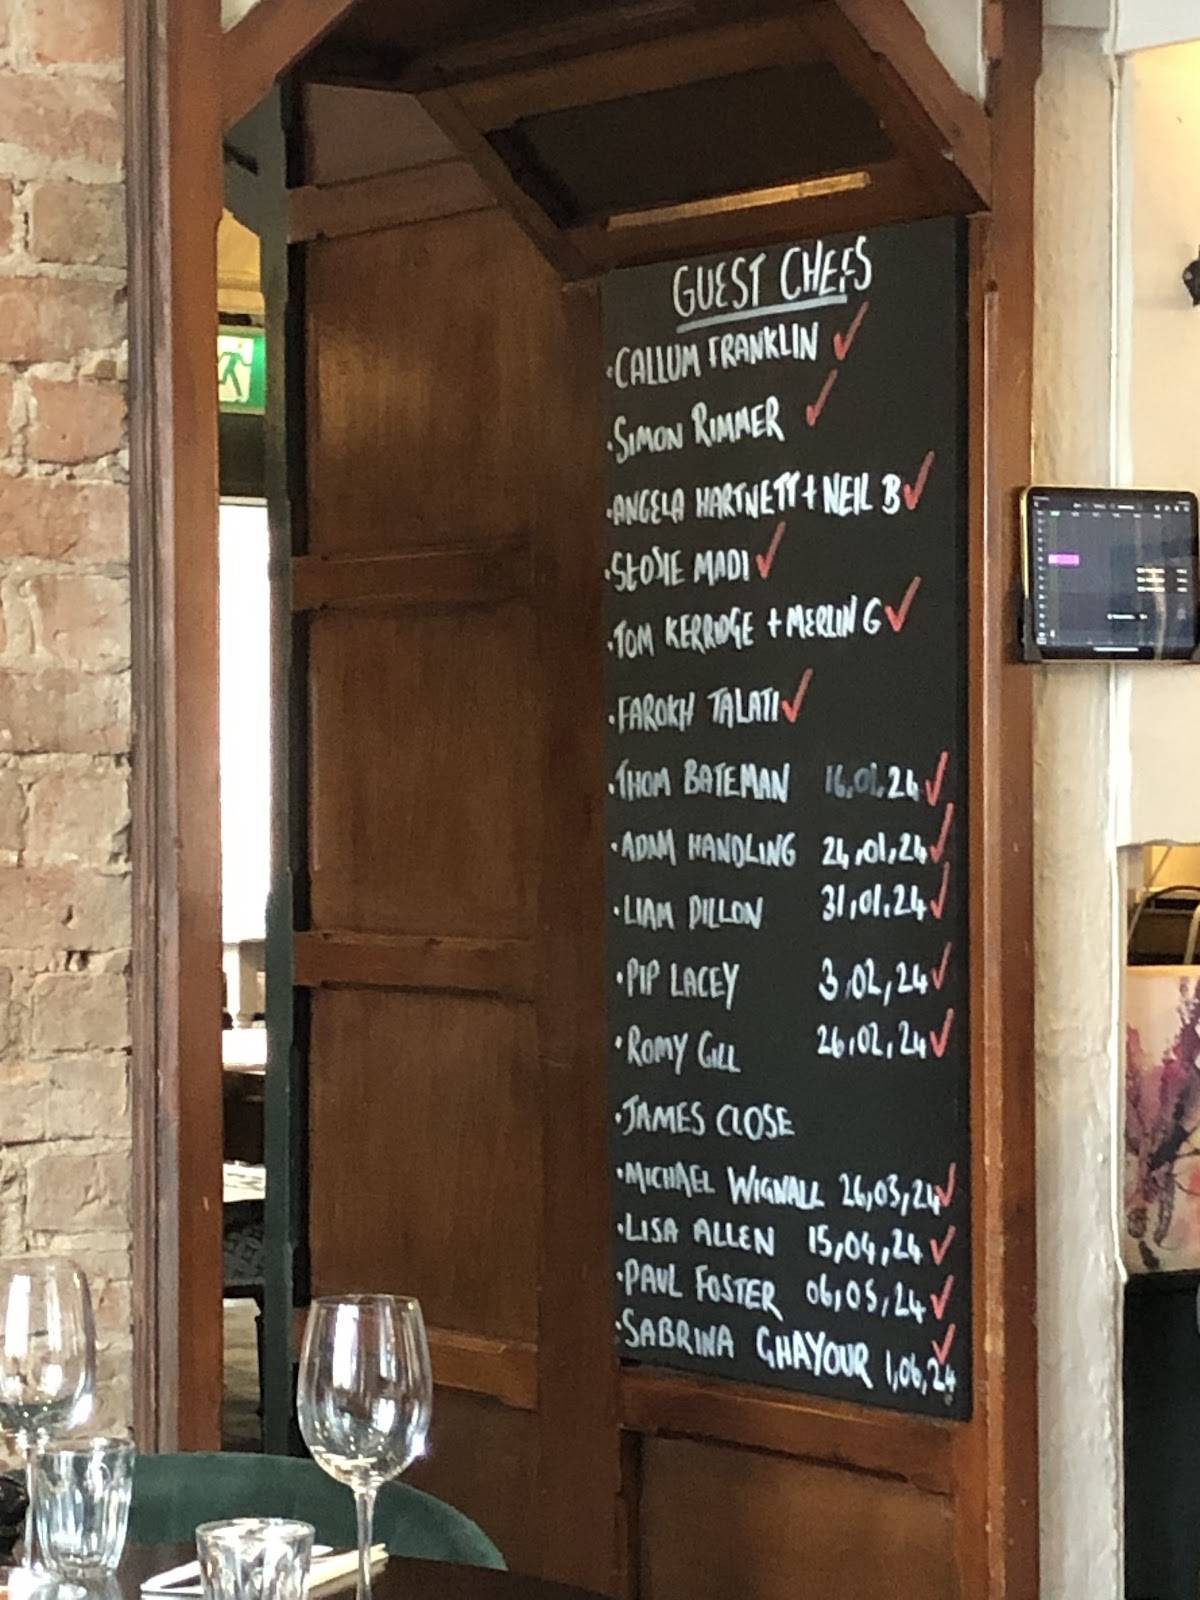 GUEST CHEFS
·CALLUM FRANKLIN ✓
·SIMON RIMMER ✓
·ANGELA HARTNETT + NEIL B ✓
·STOSIE MADI ✓
·TOM KERRIDGE + MERLIN G ✓
·FAROKH TALATI ✓
·THOM BATEMAN 16,01,24 ✓
·ADAM HANDLING 24,01,24 ✓
·LIAM DILLON 31,01,24 ✓
·PIP LACEY 3,02,24 ✓
·ROMY GILL 26,02,24 ✓
·JAMES CLOSE
·MICHAEL WIGNALL 26,03,24 ✓
·LISA ALLEN 15,04,24 ✓
·PAUL FOSTER 06,05,24 ✓
·SABRINA GHAYOUR 1,06,24 ✓